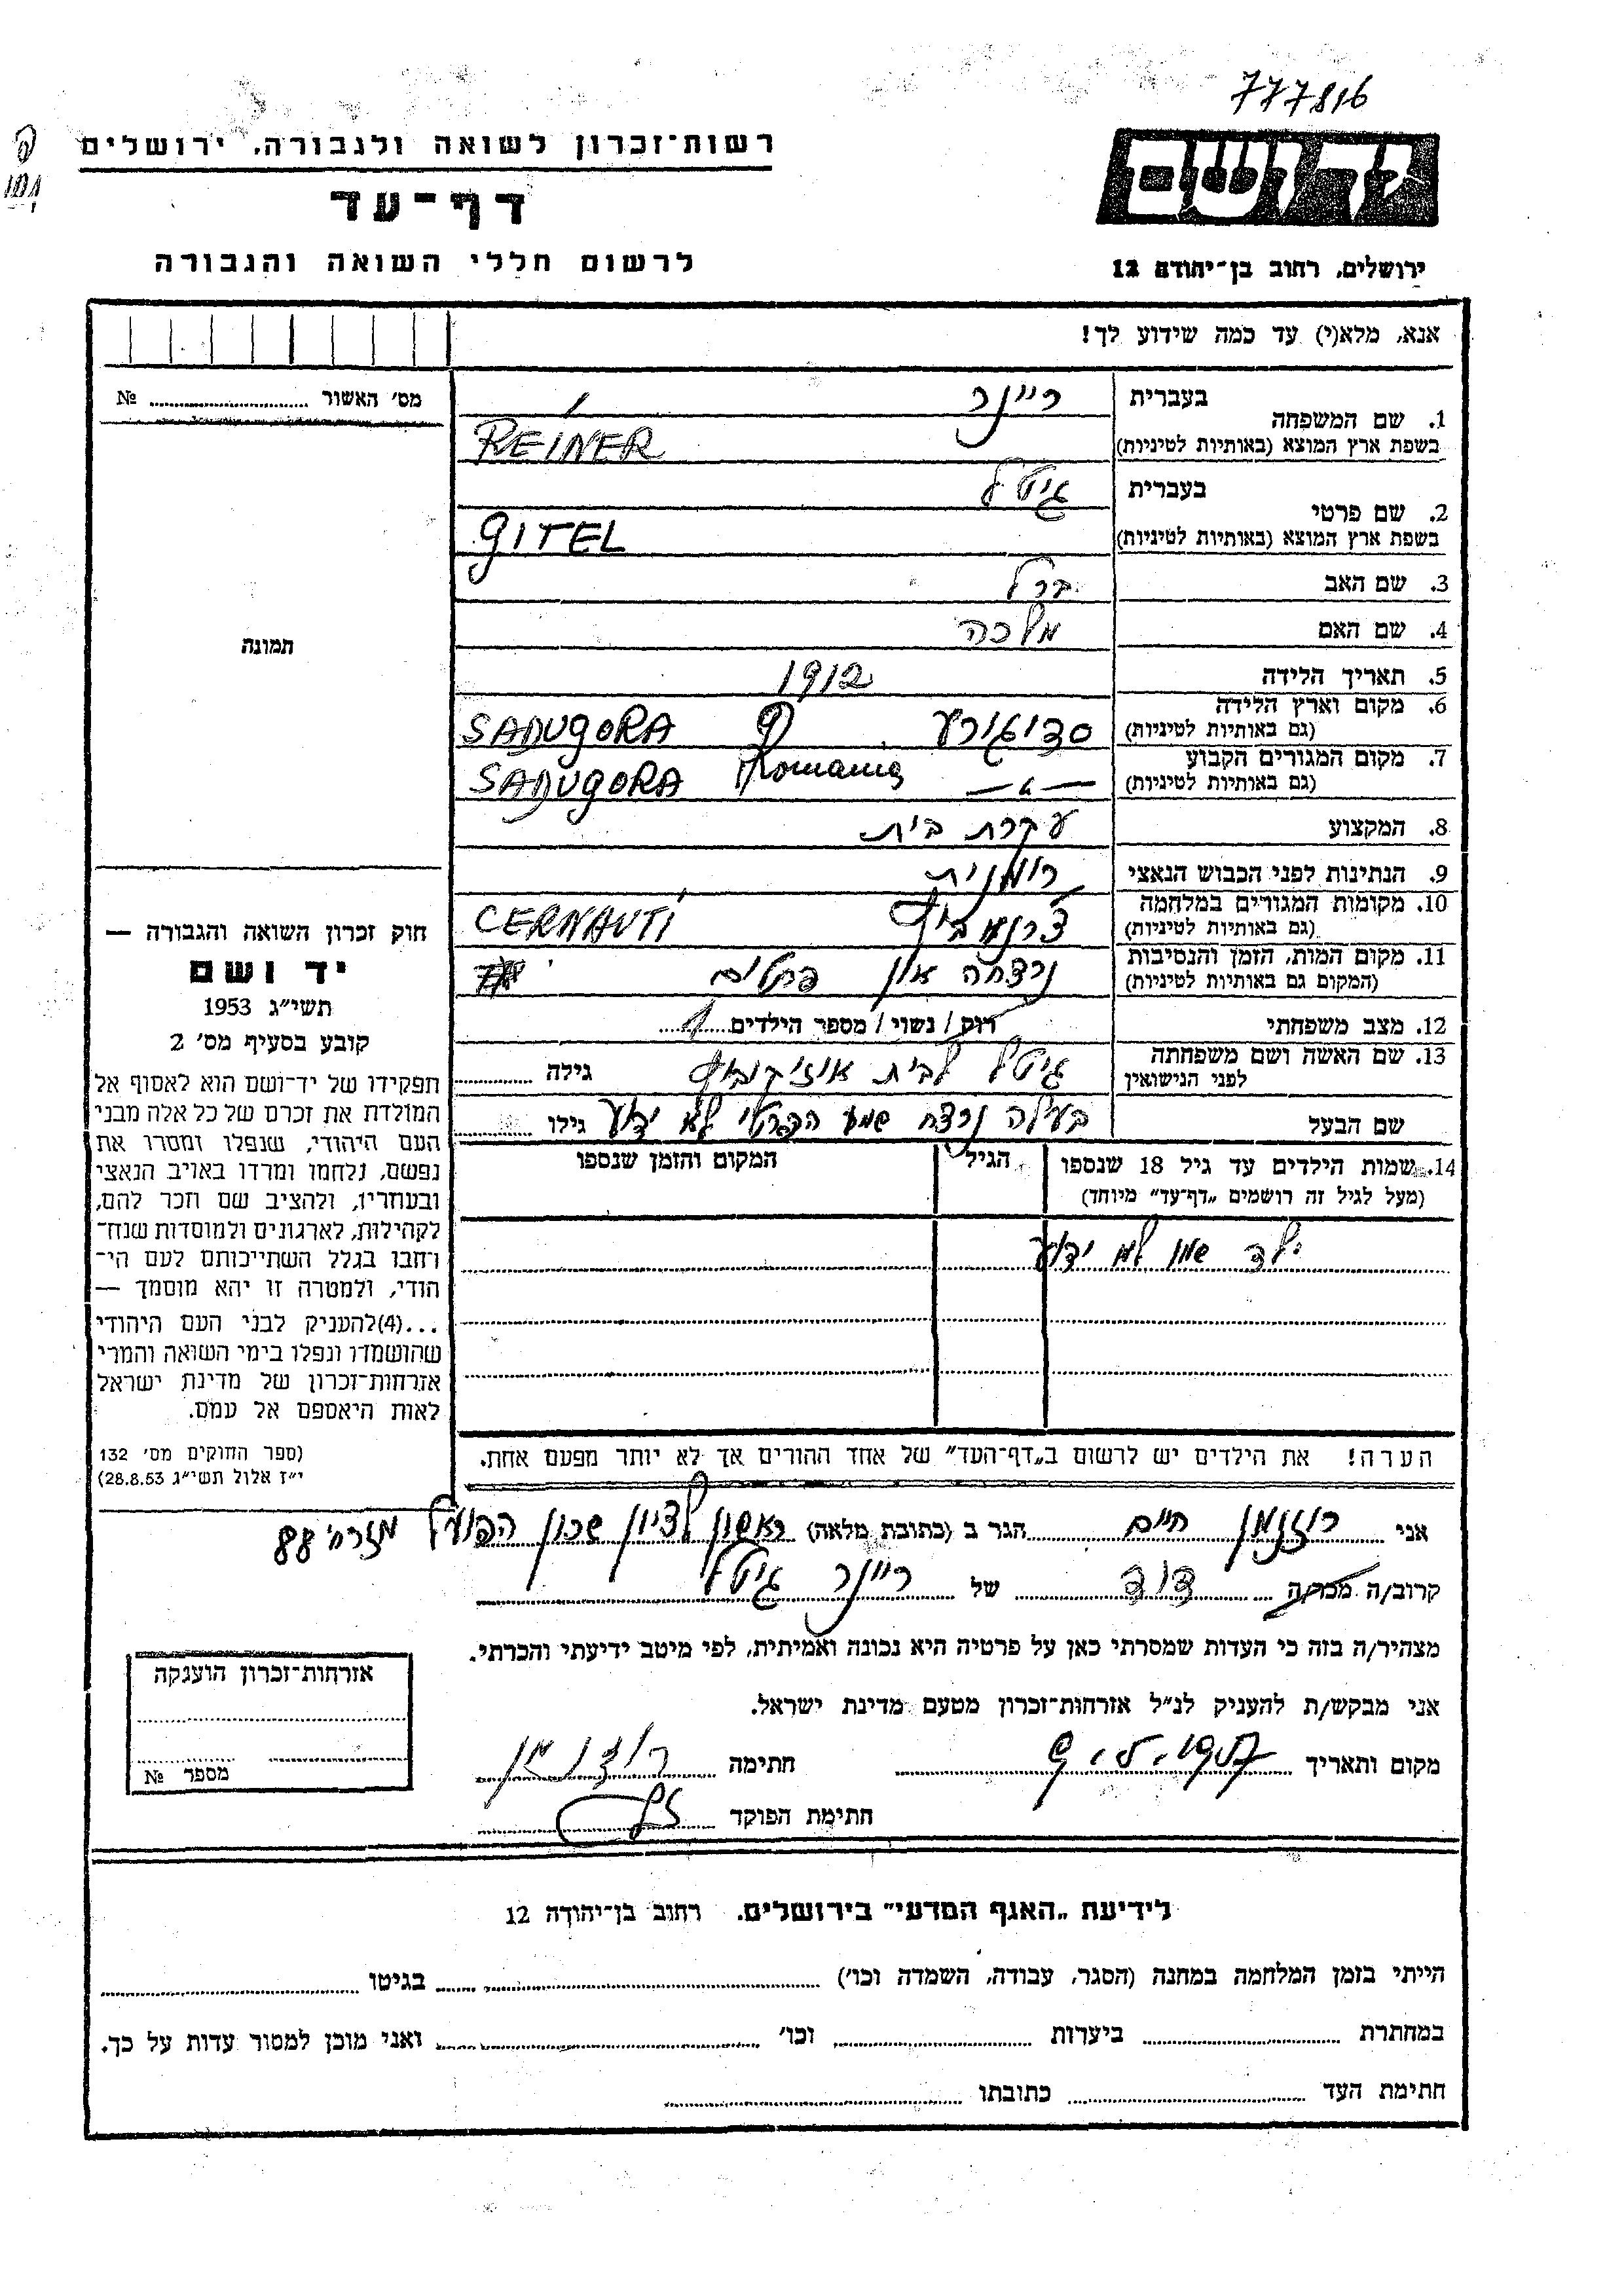 777816
יד ושם
ירושלים, רחוב בן־יהודה 12
רשות־זכרון לשואה ולגבורה, ירושלים
דף־עד
לרשום חללי השואה והגבורה
אנא, מלא(י) עד כמה שידוע לך!
מס' האשור № 
1. שם המשפחה בעברית ריינר
בשפת ארץ המוצא (באותיות לטיניות) REINER
2. שם פרטי בעברית גיטל
בשפת ארץ המוצא (באותיות לטיניות) GITEL
3. שם האב ברל
4. שם האם מלכה
5. תאריך הלידה 1912
6. מקום וארץ הלידה (גם באותיות לטיניות) סדיגורע SADUGORA
7. מקום המגורים הקבוע (גם באותיות לטיניות) SADUGORA Romania
8. המקצוע עקרת בית
9. הנתינות לפני הכבוש הנאצי רומנית
10. מקומות המגורים במלחמה (גם באותיות לטיניות) CERNAUTI
11. מקום המות, הזמן והנסיבות (המקום גם באותיות לטיניות) נרצחה אין פרטים
12. מצב משפחתי רווק / נשוי / מספר הילדים 1
13. שם האשה ושם משפחתה לפני הנישואין גיטל לבית גילה
שם הבעל בעלה נרצח שמו הפרטי לא ידוע גילו
14. שמות הילדים עד גיל 18 שנספו (מעל לגיל זה רושמים „דף־עד" מיוחד) הגיל המקום והזמן שנספו
ילד שמו לא ידוע
הערה! את הילדים יש לרשום ב„דף־העד" של אחד ההורים אך לא יותר מפעם אחת.
תמונה
חוק זכרון השואה והגבורה —
יד ושם
תשי"ג 1953
קובע בסעיף מס' 2
תפקידו של יד־ושם הוא לאסוף אל
המולדת את זכרם של כל אלה מבני
העם היהודי, שנפלו ומסרו את
נפשם, נלחמו ומרדו באויב הנאצי
ובעוזריו, ולהציב שם וזכר להם,
לקהילות, לארגונים ולמוסדות שנח־
רבו בגלל השתייכותם לעם הי־
הודי, ולמטרה זו יהא מוסמך —
...(4) להעניק לבני העם היהודי
שהושמדו ונפלו בימי השואה והמרי
אזרחות־זכרון של מדינת ישראל
לאות היאספם אל עמם.
(ספר החוקים מס' 132
י"ז אלול תשי"ג 28.8.53)
אני רוזנמן חיים הגר ב (כתובת מלאה) ראשון לציון שכון הפועל מזרחי 88
קרוב/ה מכר/ה דוד של ריינר גיטל
מצהיר/ה בזה כי העדות שמסרתי כאן על פרטיה היא נכונה ואמיתית, לפי מיטב ידיעתי והכרתי.
אני מבקש/ת להעניק לנ"ל אזרחות־זכרון מטעם מדינת ישראל.
מקום ותאריך חתימה רוזנמן
חתימת הפוקד
אזרחות־זכרון הוענקה
מספר №
לידיעת „האגף המדעי" בירושלים. רחוב בן־יהודה 12
הייתי בזמן המלחמה במחנה (הסגר, עבודה, השמדה וכו') בגיטו
במחתרת ביערות וכו' ואני מוכן למסור עדות על כך.
חתימת העד כתובתו